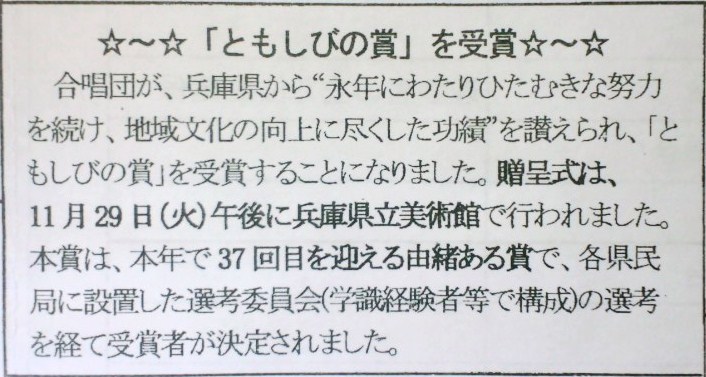 ☆～☆「ともしびの賞」を受賞☆～☆
合唱団が、兵庫県から“永年にわたりひたむきな努力
を続け、地域文化の向上に尽くした功績”を讃えられ、「と
もしびの賞」を受賞することになりました。贈呈式は、
11月29日(火)午後に兵庫県立美術館で行われました。
本賞は、本年で37回目を迎える由緒ある賞で、各県民
局に設置した選考委員会(学識経験者等で構成)の選考
を経て受賞者が決定されました。